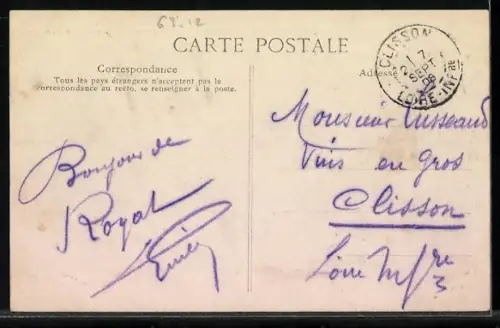 64.12
CARTE POSTALE
Correspondance
Tous les pays étrangers n'acceptent pas la
correspondance au recto, se renseigner à la poste.
Adresse
CLISSON
7
SEPT
08
LOIRE-INFRE
Bonjour de
Royat
Monsieur Lusseaud
Vins en gros
Clisson
Loire Infre